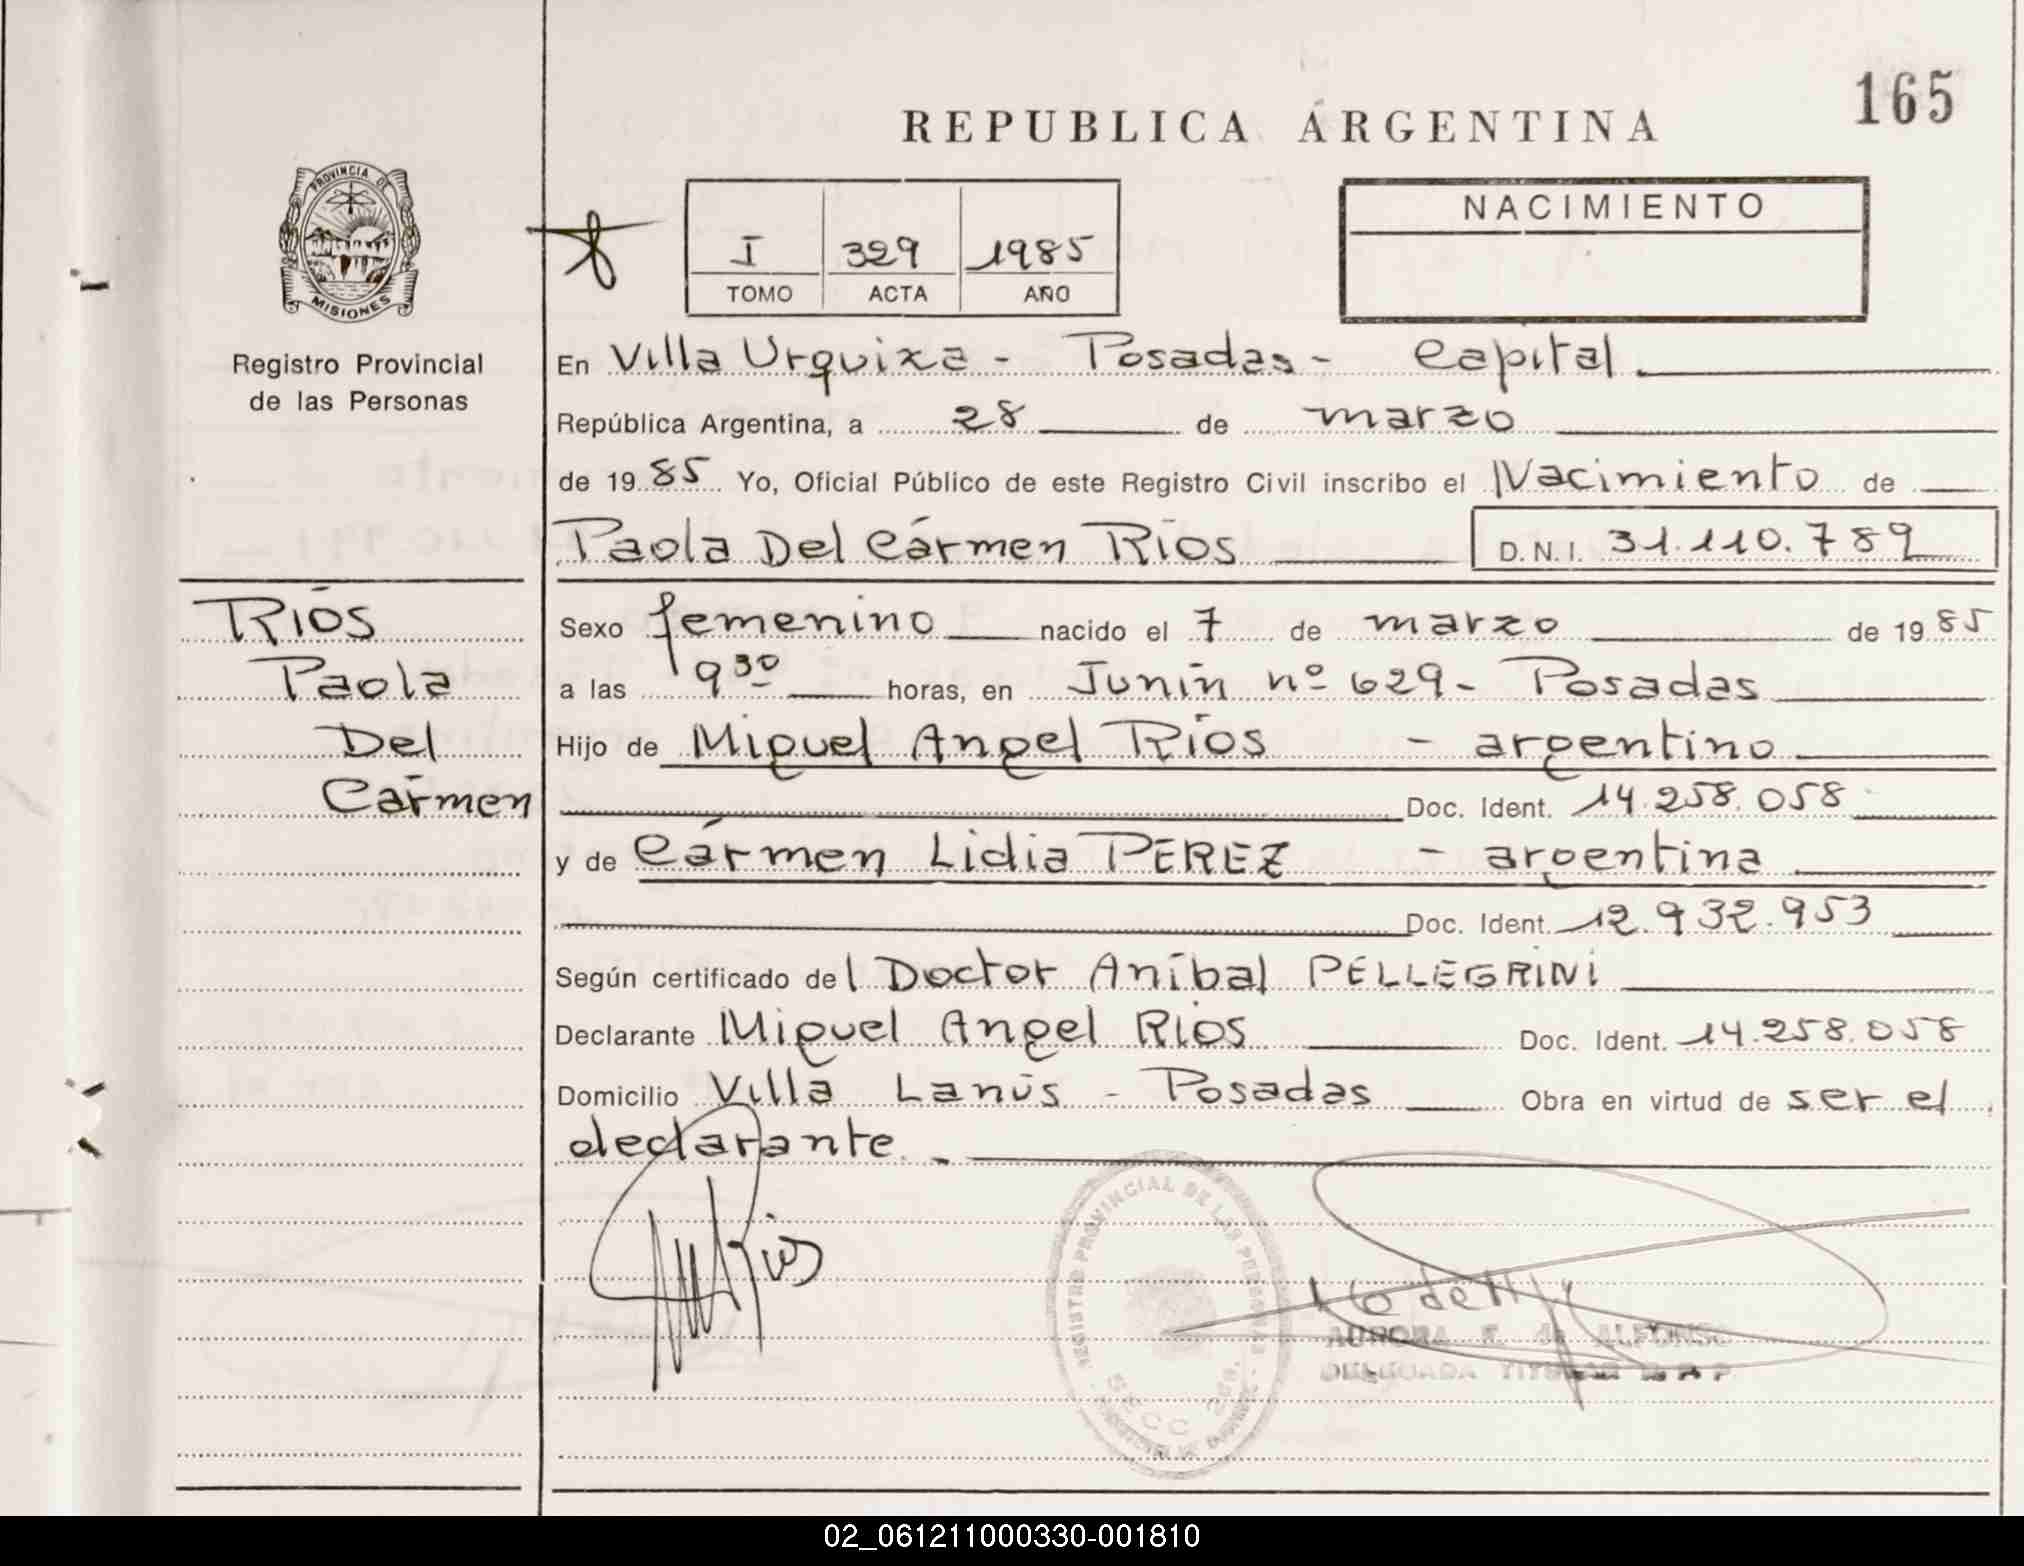 165
REPUBLICA ARGENTINA
PROVINCIA DE
MISIONES
Registro Provincial
de las Personas
I 329 1985
TOMO ACTA AÑO
NACIMIENTO
En Villa Urquixa - Posadas - Capital
República Argentina, a 28 de marzo
de 1985 Yo, Oficial Público de este Registro Civil inscribo el Nacimiento de
Paola Del Cármen Ríos D.N.I. 31.110.789
Ríos
Paola
Del
Cármen
Sexo femenino nacido el 7 de marzo de 1985
a las 9 30 horas, en Junín nº 629 - Posadas
Hijo de Miguel Angel Ríos - argentino
Doc. Ident. 14.258.058
y de Cármen Lidia PEREZ - argentina
Doc. Ident. 12.932.953
Según certificado del Doctor Aníbal PELLEGRINI
Declarante Miguel Angel Ríos Doc. Ident. 14.258.058
Domicilio Villa Lanús - Posadas Obra en virtud de ser el
declarante. -
Rios
REGISTRO PROVINCIAL DE LAS PERSONAS
SECC
AURORA E. de ALFONSO
DELEGADA TITULAR R. P. P.
02_061211000330-001810